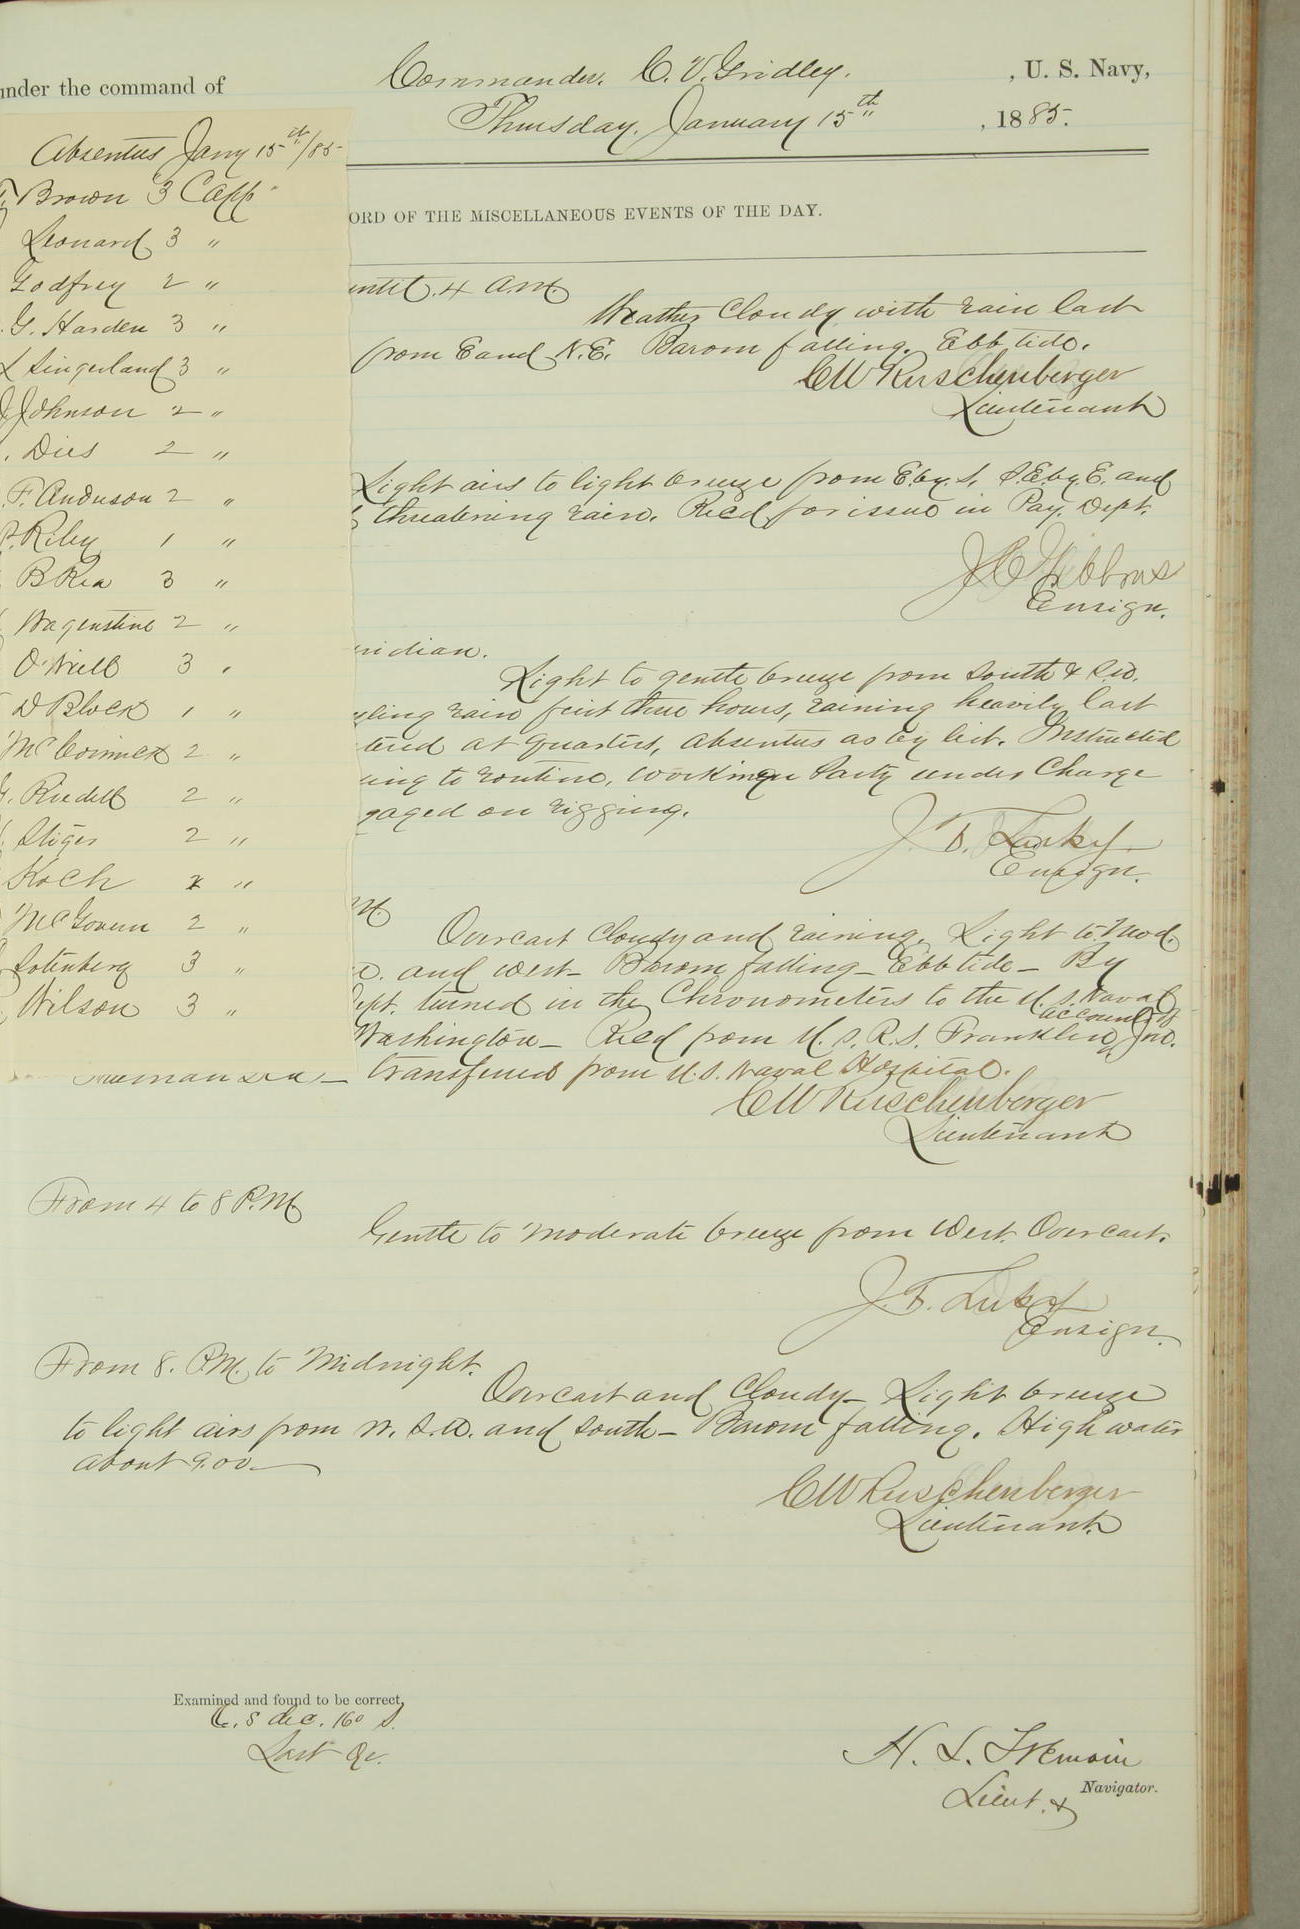 under the command of Commander. C. V. Gridley. , U. S. Navy,
Thursday, January 15th , 1885.
Absentees Jany 15th/85
Brown 3 Capp "
Leonard 3 "
Godfrey 2 "
G. Harden 3 "
Singerland 3 "
J Johnson 2 "
Dies 2 "
F. Anderson 2 "
P. Riley 1 "
B Rea 3 "
Wagenstine 2 "
O'Niell 3 "
D Block 1 "
McCormick 2 "
Riedell 2 "
Stiger 2 "
Koch "
McGovern 2 "
Lotenberg 3 "
Wilson 3 "
ORD OF THE MISCELLANEOUS EVENTS OF THE DAY.
until 4 A.M.
Weather Cloudy with rain last
from E and N.E. Barom falling. Ebb tide.
C W Ruschenberger
Lieutenant
Light airs to light breeze from E. by. S. S.E. by E. and
threatening rain. Recd for issue in Pay. Dept.
J C Gibbons
Ensign.
ridian.
Light to gentle breeze from South & S.W.
zling rain first three hours, raining heavily last
tered at Quarters, absentees as by list. Instructed
ing to routine, working Party under Charge
gaged on rigging.
Ensign.
M
Overcast Cloudy and raining. Light to Mod.
W. and West — Barom falling — Ebb tide — By
ept. turned in the Chronometers to the U. S. Naval
Washington — Recd from U. S. R. S. Franklin, accounts of Jno.
transferred from U. S. Naval Hospital.
C W Ruschenberger
Lieutenant
From 4 to 8 P.M.
Gentle to moderate breeze from West. Overcast.
Ensign.
From 8. P.M. to Midnight.
Overcast and Cloudy — Light breeze
to light airs from W. S.W. and South — Barom falling. High water
about 9.00 —
C W Ruschenberger
Lieutenant.
Examined and found to be correct,
C. S dec. 160 S.
Last Qr.
H. L. Tremain
Lieut. &
Navigator.